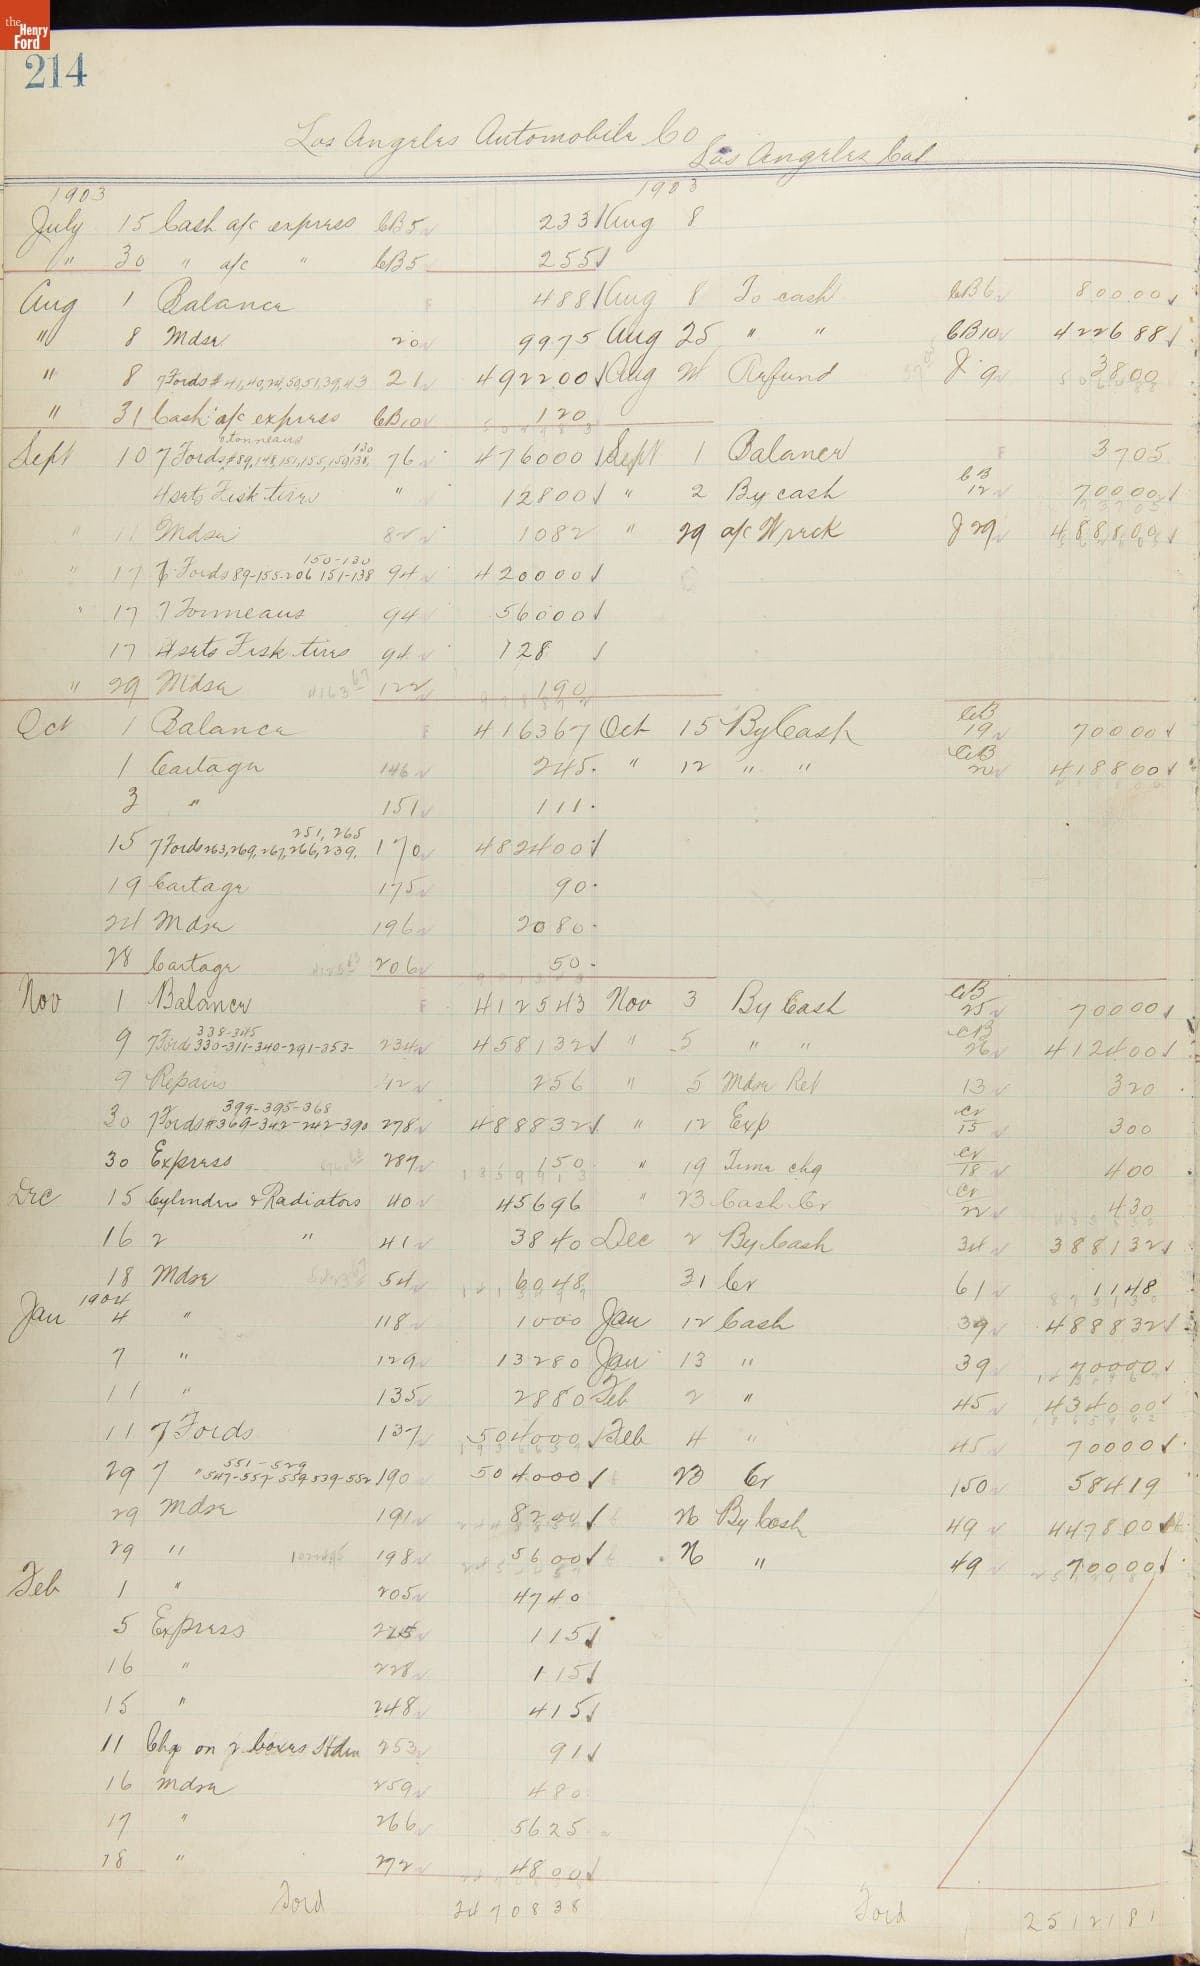 the
Henry
Ford
214
Los Angeles Automobile Co
Los Angeles Cal
1903 1903
July 15 Cash a/c express CB5 233 Aug 8
" 30 " a/c " CB5 255
Aug 1 Balance 488 Aug 8 To cash CB6 80000
" 8 Mdse 20 9975 Aug 25 " " CB10 422688
" 8 7 Fords # 41,40,24,50,51,39,43 21 492200 Aug 24 Refund J 9 3800
" 31 Cash a/c express CB10 120
tonneaus
130
Sept 10 7 Fords #89,148,151,155,159,138, 76 476000 Sept 1 Balance 3705
4 sets Fisk tires " 12800 " 2 By cash CB 12 70000
" 11 Mdse 82 1082 " 29 a/c Wreck J 29 488800
150-130
" 17 7 Fords 89-155-206 151-138 94 420000
" 17 7 Tonneaus 94 56000
17 4 sets Fisk tires 94 128
" 29 Mdse 122 190
Oct 1 Balance 416367 Oct 15 By Cash CB 19 70000
1 Cartage 146 245 " 12 " " CB 20 418800
3 " 151 111
251, 265
15 7 Fords 263,269,267,266,239, 170 482400
19 Cartage 175 90
24 Mdse 196 2080
28 Cartage 206 50
Nov 1 Balance 412543 Nov 3 By Cash CB 25 70000
338-345
9 7 Fords 330-311-340-291-353- 234 458132 " 5 " " CB 26 412400
9 Repairs 42 256 " 5 Mdse Ret 13 320
399-395-368
30 7 Fords #369-342-242-390 278 488832 " 12 Exp Cr 15 300
30 Express 287 150 " 19 Time chg Cr 18 400
Dec 15 Cylinders & Radiators 40 45696 " 23 Cash Cr Cr 22 430
16 2 " 41 3840 Dec 2 By Cash 34 388132
18 Mdse 54 6048 31 Cr 61 1148
1904
Jan 4 " 118 1000 Jan 12 Cash 39 488832
7 " 129 13280 Jan 13 " 39 70000
11 " 135 2880 Feb 2 " 45 434000
11 7 Fords 137 504000 Feb 4 " 45 70000
551-529
29 7 " 547-557-559-539-552 190 504000 23 Cr 150 58419
29 Mdse 191 8200 26 By Cash 49 447800
29 " 198 5600 26 " 49 70000
Feb 1 " 205 4740
5 Express 225 115
16 " 228 115
15 " 248 415
11 Chg on 2 boxes 253 91
16 Mdse 259 480
17 " 266 5625
18 " 272 4800
Ford 2470838 Ford 2512181